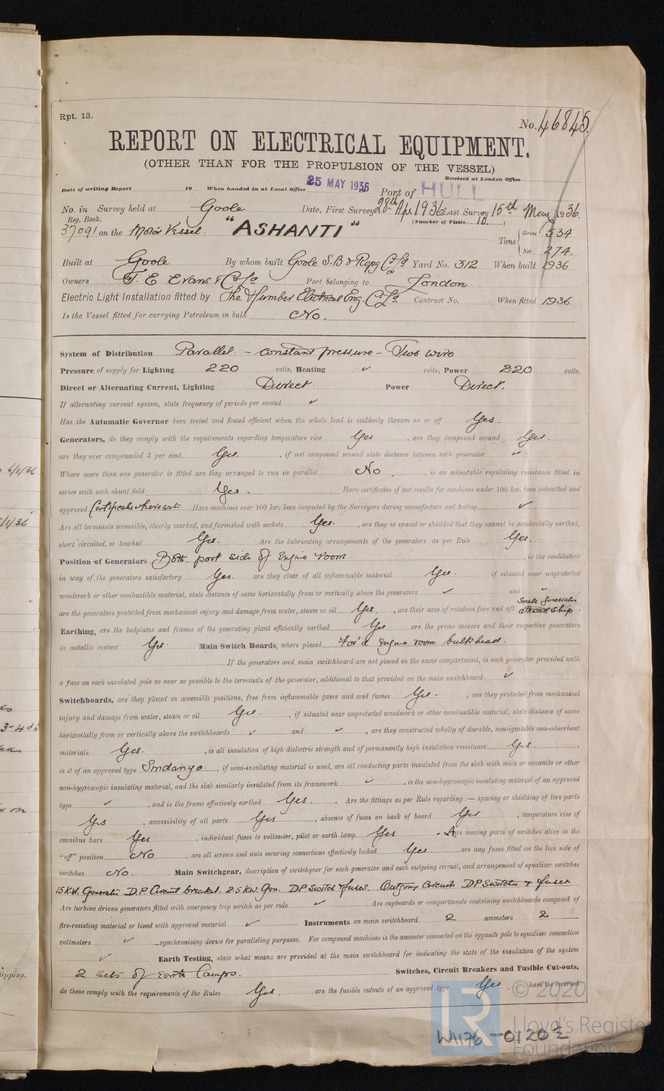 Rpt. 13.
No. 46845
REPORT ON ELECTRICAL EQUIPMENT.
(OTHER THAN FOR THE PROPULSION OF THE VESSEL)
Received at London Office
Date of writing Report 19 When handed in at Local Office 25 MAY 1936 Port of HULL
No. in Survey held at Goole Date, First Survey 28th Apl 1936 Last Survey 15th May 1936
Reg. Book. (Number of Visits 10.
37091 on the Motor Vessel "ASHANTI" Tons Gross 534
Net 274
Built at Goole By whom built Goole S.B & Repg Co Ld Yard No. 312 When built 1936
Owners T. E. Evans & Co Ld Port belonging to London
Electric Light Installation fitted by The Humber Electrical Eng. Co Ld Contract No. When fitted 1936
Is the Vessel fitted for carrying Petroleum in bulk No.
System of Distribution Parallel - constant pressure - Two wire
Pressure of supply for Lighting 220 volts, Heating ✓ volts, Power 220 volts.
Direct or Alternating Current, Lighting Direct Power Direct.
If alternating current system, state frequency of periods per second ✓
Has the Automatic Governor been tested and found efficient when the whole load is suddenly thrown on or off Yes.
Generators, do they comply with the requirements regarding temperature rise Yes, are they compound wound Yes.
are they over compounded 5 per cent. Yes., if not compound wound state distance between each generator ✓
Where more than one generator is fitted are they arranged to run in parallel No., is an adjustable regulating resistance fitted in
series with each shunt field Yes. Have certificates of test results for machines under 100 kw. been submitted and
approved Certificates herewith. Have machines over 100 kw. been inspected by the Surveyors during manufacture and testing ✓
Are all terminals accessible, clearly marked, and furnished with sockets Yes., are they so spaced or shielded that they cannot be accidentally earthed,
short circuited, or touched Yes. Are the lubricating arrangements of the generators as per Rule Yes.
Position of Generators Both port side of Engine room., is the ventilation
in way of the generators satisfactory Yes. are they clear of all inflammable material Yes. if situated near unprotected
woodwork or other combustible material, state distance of same horizontally from or vertically above the generators ✓ and ✓
are the generators protected from mechanical injury and damage from water, steam or oil Yes., are their axes of rotation fore and aft Small Generator athwart ship.
Earthing, are the bedplates and frames of the generating plant efficiently earthed Yes. are the prime movers and their respective generators
in metallic contact Yes Main Switch Boards, where placed For'd Engine room bulkhead.
If the generators and main switchboard are not placed in the same compartment, is each generator provided with
a fuse on each insulated pole as near as possible to the terminals of the generator, additional to that provided on the main switchboard ✓
Switchboards, are they placed in accessible positions, free from inflammable gases and acid fumes Yes., are they protected from mechanical
injury and damage from water, steam or oil Yes., if situated near unprotected woodwork or other combustible material, state distance of same
horizontally from or vertically above the switchboards ✓ and ✓, are they constructed wholly of durable, non-ignitable non-absorbent
materials Yes., is all insulation of high dielectric strength and of permanently high insulation resistance Yes.
is it of an approved type Sindanyo, if semi-insulating material is used, are all conducting parts insulated from the slab with mica or micanite or other
non-hygroscopic insulating material, and the slab similarly insulated from its framework ✓, is the non-hygroscopic insulating material of an approved
type ✓, and is the frame effectively earthed Yes. Are the fittings as per Rule regarding:— spacing or shielding of live parts
Yes, accessibility of all parts Yes, absence of fuses on back of board Yes, temperature rise of
omnibus bars Yes, individual fuses to voltmeter, pilot or earth lamp Yes. Are moving parts of switches alive in the
"off" position No are all screws and nuts securing connections effectively locked Yes. are any fuses fitted on the live side of
switches No Main Switchgear, description of switchgear for each generator and each outgoing circuit, and arrangement of equaliser switches
15 K.W. Generator D.P. Circuit breaker. 2.5 K.W. Gen. D.P Switch & fuses. Outgoing Circuits D.P Switches & fuses
Are turbine driven generators fitted with emergency trip switch as per rule ✓ Are cupboards or compartments containing switchboards composed of
fire-resisting material or lined with approved material ✓ Instruments on main switchboard 2 ammeters 2
voltmeters ✓ synchronising device for paralleling purposes. For compound machines is the ammeter connected on the opposite pole to equaliser connection
✓ Earth Testing, state what means are provided at the main switchboard for indicating the state of the insulation of the system
2 Sets of Earth Lamps. Switches, Circuit Breakers and Fusible Cut-outs,
do these comply with the requirements of the Rules Yes., are the fusible cutouts of an approved type Yes, have the reversed
© 2020
Lloyd's Register
Foundation
W1176-0120½